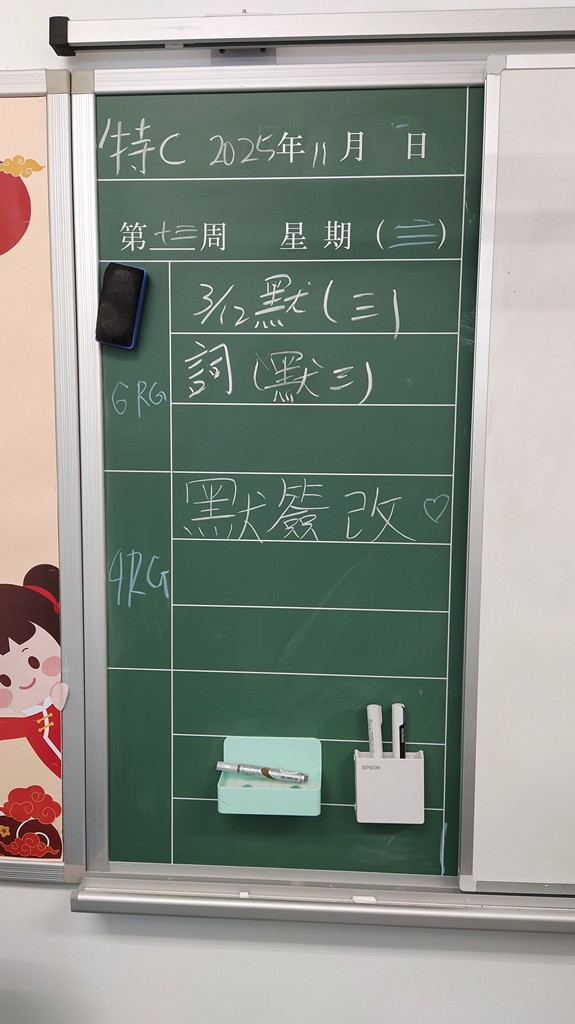 特C 2025年11月 日
第十三周 星期(三)
3/12默(三)
詞(默三)
6RG
默簽改♡
4RG
EPSON